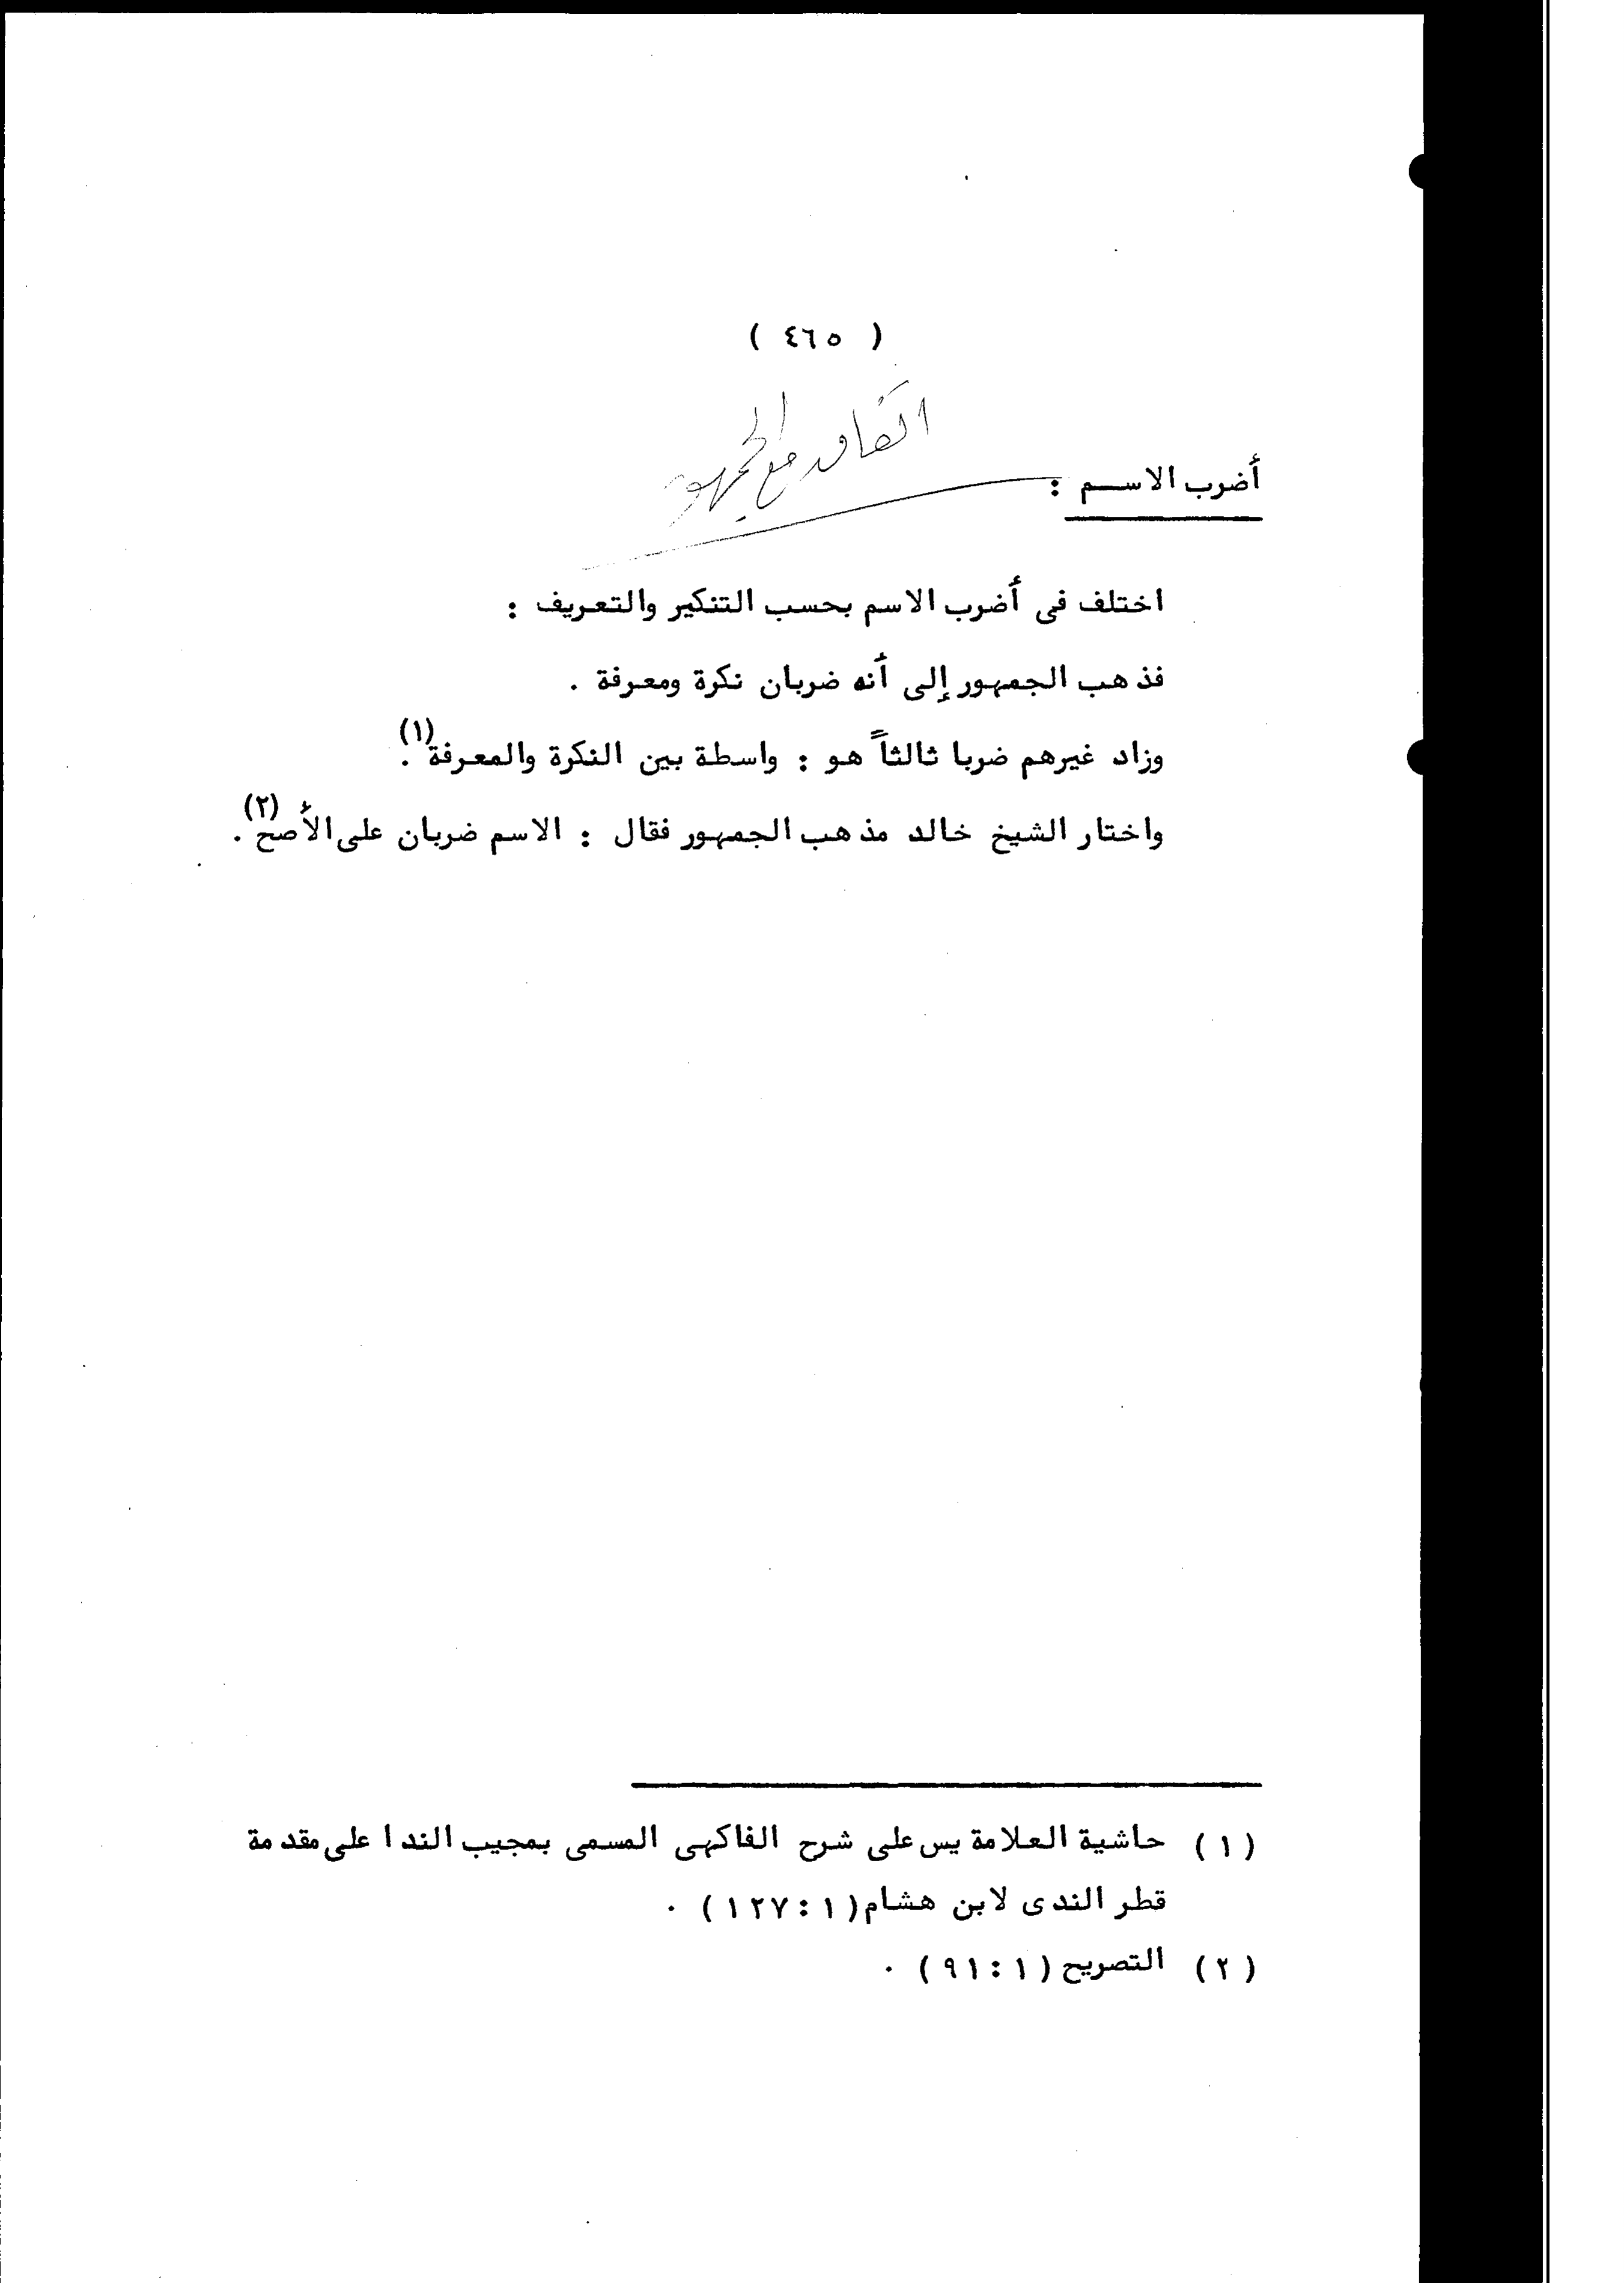 ( ٤٦٥ )
اتفاق مع الجمهور
أضرب الاســم :
اختلف فى أضرب الاسم بحسب التنكير والتعريف :
فذهب الجمهور إلى أنه ضربان نكرة ومعرفة .
وزاد غيرهم ضربا ثالثاً هو : واسطة بين النكرة والمعرفة(١).
واختار الشيخ خالد مذهب الجمهور فقال : الاسم ضربان على الأصح(٢).
(١) حاشية العلامة يس على شرح الفاكهى المسمى بمجيب الندا على مقدمة
قطر الندى لابن هشام (١ : ١٢٧) .
(٢) التصريح (١ : ٩١) .